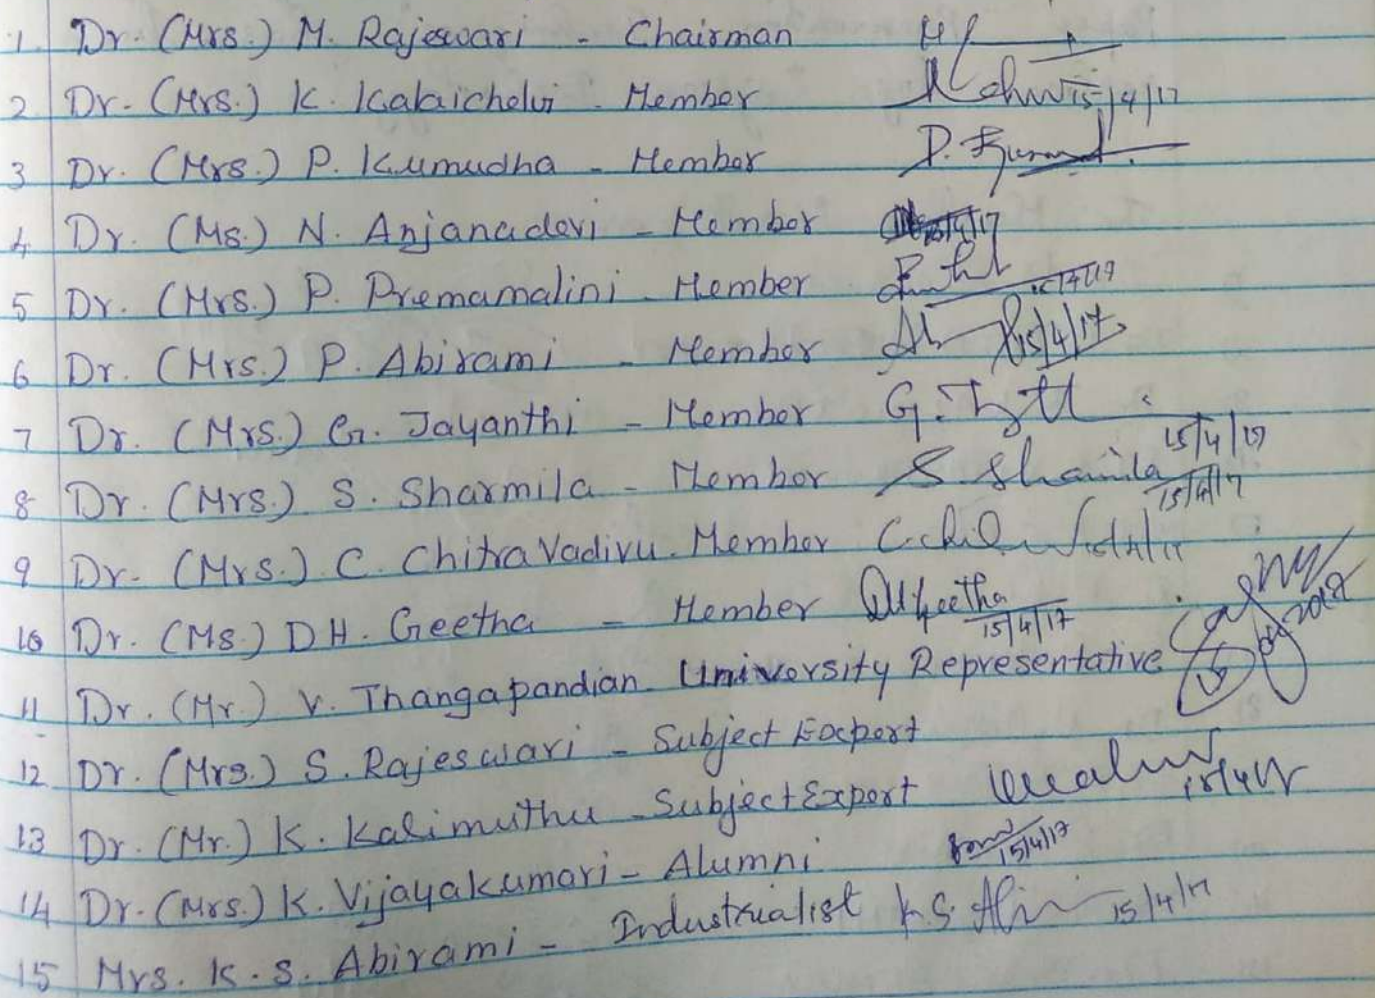 1. Dr. (Mrs.) M. Rajeswari - Chairman
2 Dr. (Mrs.) K. Kalaichelvi - Member 15/4/17
3 Dr. (Mrs.) P. Kumudha - Member
4 Dr. (Ms.) N. Anjanadevi - Member
5 Dr. (Mrs.) P. Premamalini - Member 15/4/17
6 Dr. (Mrs.) P. Abirami - Member 15/4/17
7 Dr. (Mrs.) G. Jayanthi - Member 15/4/17
8 Dr. (Mrs.) S. Sharmila - Member S. Sharmila 15/4/17
9 Dr. (Mrs.) C. Chitra Vadivu - Member
10 Dr. (Ms.) D H. Geetha - Member DHGeetha 15/4/17
11 Dr. (Mr.) V. Thangapandian - University Representative
12 Dr. (Mrs.) S. Rajeswari - Subject Expert
13 Dr. (Mr.) K. Kalimuthu - Subject Expert
14 Dr. (Mrs.) K. Vijayakumari - Alumni 15/4/17
15 Mrs. K. S. Abirami - Industrialist 15/4/17